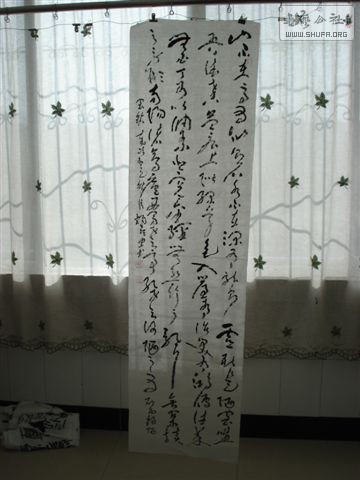 书法公社
WWW.SHUFA.ORG
山不在高有仙则名水不在深有龙则灵斯是陋室惟
吾德馨苔痕上阶绿草色入帘青谈笑有鸿儒往来
无白丁可以调素琴阅金经无丝竹之乱耳无案牍
之劳形南阳诸葛庐西蜀子云亭孔子云何陋之有